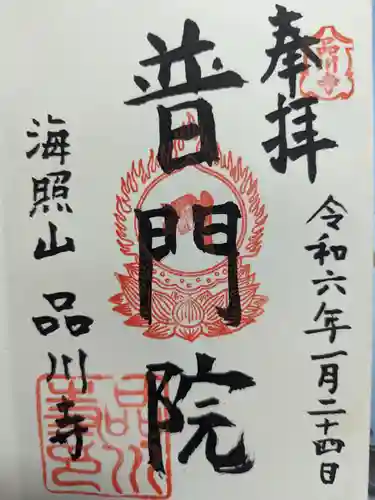 奉拝
品川寺
令和六年一月二十四日
普門院
海照山 品川寺